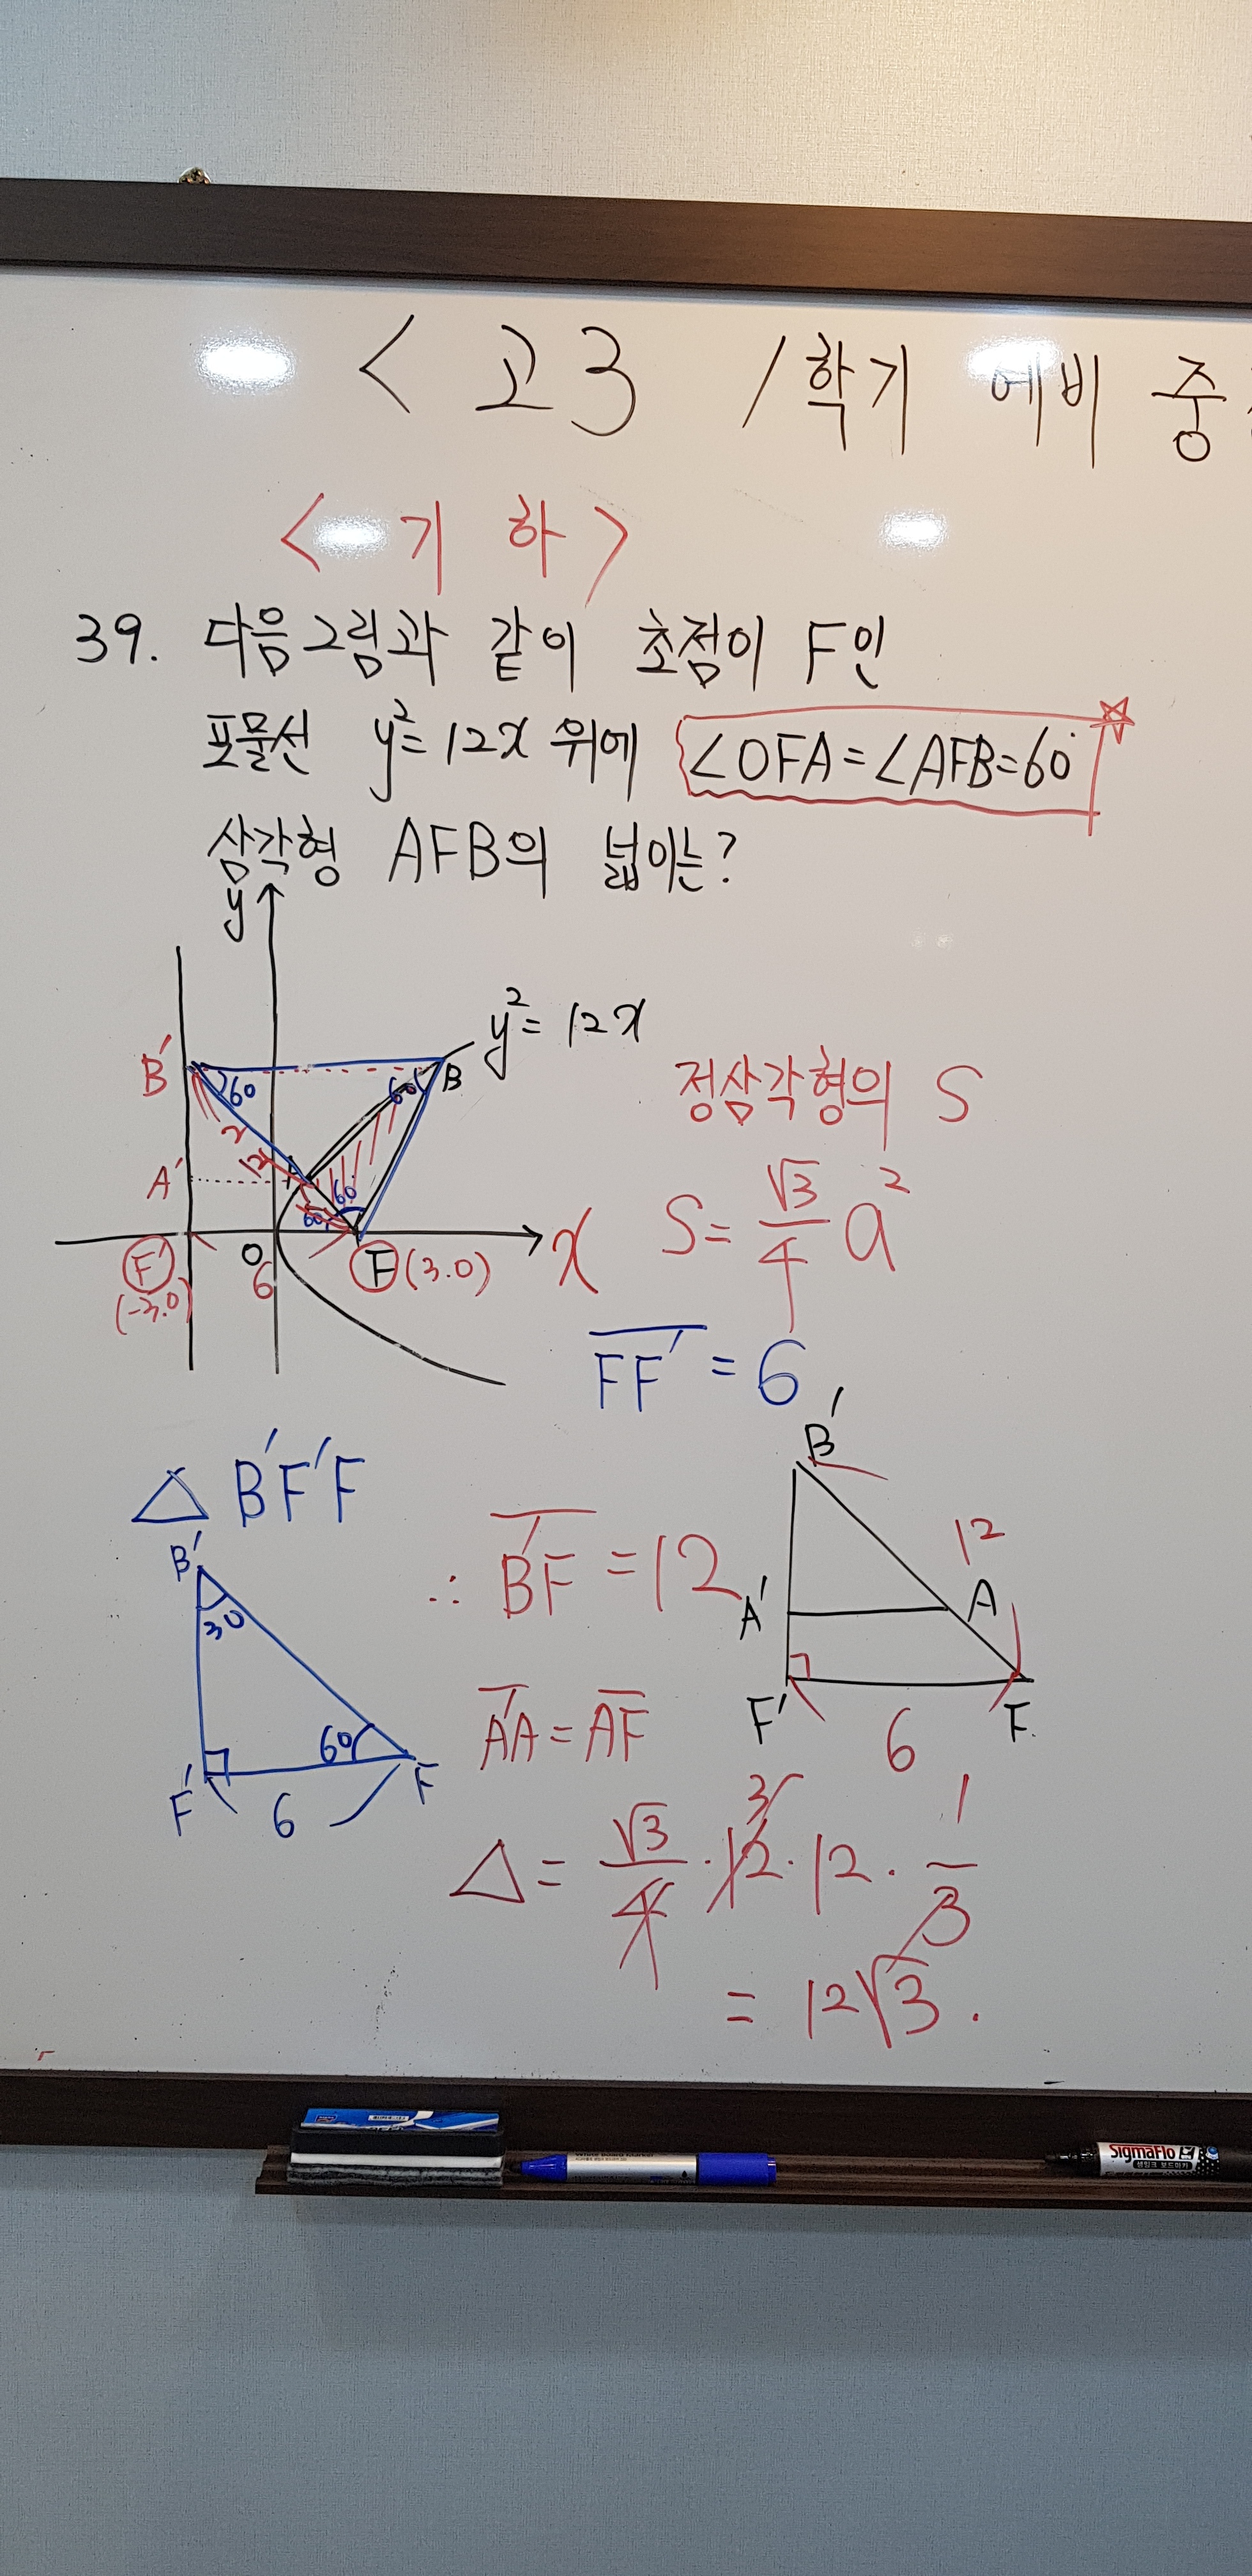 < 고3 1학기 예비 중
< 기 하 >
39. 다음그림과 같이 초점이 F인
포물선 y²=12x 위에 ∠OFA=∠AFB=60°
삼각형 AFB의 넓이는?
y
y²=12x
B′
60
60
B
2
12
A′
A
60
60
F′
(-3.0)
O
6
F (3.0)
x
정삼각형의 S
S=√3/4 a²
FF′=6
△B′F′F
B′
30
60
F′
6
F
∴ B′F=12
B′
12
A′
A
F′
6
F.
A′A=AF
△=√3/4·12·12·1/3
3
=12√3.
SigmaFlo